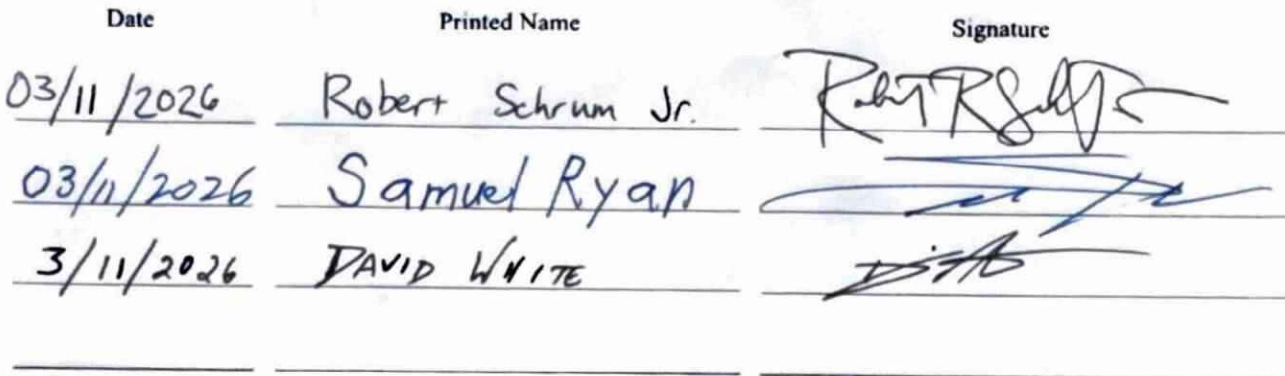 Date Printed Name Signature
03/11/2026 Robert Schrum Jr. Robert R
03/11/2026 Samuel Ryan
3/11/2026 DAVID WHITE